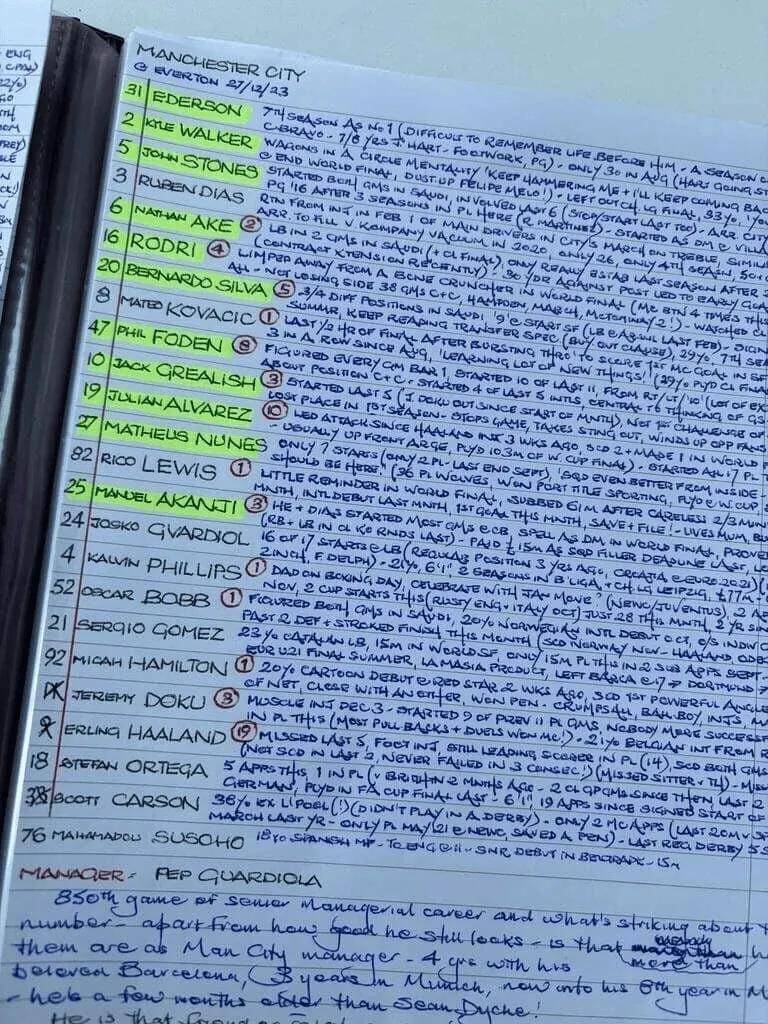 ENG
MANCHESTER CITY
@ EVERTON 27/12/23
31 EDERSON 7TH SEASON AS NO 1 (DIFFICULT TO REMEMBER LIFE BEFORE HIM - A SEASON
C.BRAVO - 7/8 YRS J HART - FOOTWORK, PG) - ONLY 30 IN AUG (HART GOING
2 KYLE WALKER WAGONS IN A CIRCLE MENTALITY 'KEEP HAMMERING ME + I'LL KEEP COMING BAC
@ END WORLD FINAL, DUST UP FELIPE MELO!) - LEFT OUT CH LG FINAL, 33YO,
5 JOHN STONES STARTED BOTH GMS IN SAUDI, INVOLVED LAST 6 (STOP/START LAST TOO) - ARR. CITY
PG '16 AFTER 3 SEASONS IN PL HERE (R MARTINEZ) - STARTED AS DM @ VILLA
3 RUBEN DIAS RTN FROM INJ IN FEB 1 OF MAIN DRIVERS IN CITY'S MARCH ON TREBLE, SIMIL
ARR. TO FILL V KOMPANY VACUUM IN 2020, ONLY 26, ONLY 4TH SEASN,
6 NATHAN AKE 2 LB IN 2 GMS IN SAUDI (+ CL FINAL), ONLY REALLY ESTAB LAST SEASON AFTER
(CONTRACT XTENSION RECENTLY)
16 RODRI 4 LIMPED AWAY FROM A BONE CRUNCHER IN WORLD FINAL (MC BTN 4 TIMES THIS
ALL - NOT LOSING SIDE 38 GMS C+C, HAMPDEN, MARCH, MCTOMINAY 2!) - WATCHED
20 BERNARDO SILVA 5 3/4 DIFF POSITIONS IN SAUDI, '9' @ START SF (LB @ ARSNL LAST FEB) - SIGN
SUMMR, KEEP READING TRANSFER SPEC (BUY OUT CLAUSE), 29YO, 7TH SEA
8 MATEO KOVACIC 1 LAST 1/2 HR OF FINAL AFTER BURSTING THRO' TO SCORE 1ST MC GOAL IN SF
3 IN A ROW SINCE AUG, 'LEARNING LOT OF NEW THINGS!' (29YO PLYD CL FINAL
47 PHIL FODEN 8 FIGURED EVERY GM BAR 1, STARTED 10 OF LAST 11, FROM RT/LT/'10' (LOT OF EX
ABOUT POSITION C+C - STARTED 4 OF LAST 5 INTLS, CENTRAL TO THINKING OF GS
10 JACK GREALISH 3 STARTED LAST 5 (J DOKU OUT SINCE START OF MNTH), NOT 1ST CHALLENGE OF
LOST PLACE IN 1ST SEASON - STOPS GAME, TAKES STING OUT, WINDS UP OPP FANS
19 JULIAN ALVAREZ 10 LED ATTACK SINCE HAALAND INJ 3 WKS AGO, SCD 2 + MADE 1 IN WORLD F
- USUALLY UP FRONT ARGE, PLYD 103M OF W.CUP FINAL) - STARTED ALL 17 PL
27 MATHEUS NUNES ONLY 7 STARTS (ONLY 2 PL - LAST END SEPT), 'SQD EVEN BETTER FROM INSIDE
SHOULD BE HERE.' (36 PL WOLVES, WON PORT TITLE SPORTING, PLYD @ W.CUP,
82 RICO LEWIS 1 LITTLE REMINDER IN WORLD FINAL, SUBBED 61M AFTER CARELESS 2/3 MIN
MNTH, INTL DEBUT LAST MNTH, 1ST GOAL THIS MNTH, SAVE + FILE! - LIVES MUM,
25 MANUEL AKANJI 3 HE + DIAS STARTED MOST GMS @ CB, SPELL AS DM IN WORLD FINAL, PROVEN
(RB + LB IN CL KO RNDS LAST) - PAID £15M AS SQD FILLER DEADLINE LAST,
24 JOSKO GVARDIOL 16 OF 17 STARTS @ LB (REGULAR POSITION 3 YRS AGO, CROATIA @ EURO 2021) (
2 INCH, F DELPH) - 21YO, 6'1", 2 SEASONS IN B'LIGA + CH LG LEIPZIG, £77M
4 KALVIN PHILLIPS 1 DAD ON BOXING DAY, CELEBRATE WITH JAN MOVE? (NEWC/JUVENTUS), 2 A
NOV, 2 CUP STARTS THIS (RUSTY ENG - ITALY OCT) JUST 28 THIS MNTH, 2 YR
52 OSCAR BOBB 1 FIGURED BOTH GMS IN SAUDI, 20YO NORWEGIAN INTL DEBUT OCT, O/S INDIV
PAST 2 DEF + STROKED FINISH THIS MONTH (SCD NORWAY NOV - HAALAND, ODE
21 SERGIO GOMEZ 23YO CATALAN LB, 15M IN WORLD SF, ONLY 15M PL THIS IN 2 SUB APPS SEPT
EUR U21 FINAL SUMMER, LA MASIA PRODUCT, LEFT BARCA @ 17 - DORTMUND
92 MICAH HAMILTON 1 20YO CARTOON DEBUT @ RED STAR 2 WKS AGO, SCD 1ST POWERFUL ANGLE
OF NET, CLOSE WITH ANOTHER, WON PEN - CRUMPSALL, BALLBOY, INJS,
JEREMY DOKU 3 MUSCLE INJ DEC 3 - STARTED 9 OF PREV 11 PL GMS, NOBODY MORE SUCCESSF
IN PL THIS (MOST PULL BACKS + DUELS WON MC!) - 21YO BELGIAN INT FROM R
ERLING HAALAND 19 MISSED LAST 5, FOOT INJ, STILL LEADING SCORER IN PL (14), SCD BOTH GMS
(NOT SCD IN LAST 2, NEVER FAILED IN 3 CONSEC!) (MISSED SITTER - TH) - MIS
18 STEFAN ORTEGA 5 APPS THIS, 1 IN PL (V BRIGHTN 2 MNTHS AGO - 2 CL GPGMS SINCE THEN LAST 2
GERMAN, PLYD IN FA CUP FINAL LAST - 6'1", 19 APPS SINCE SIGNED START OF
SCOTT CARSON 38YO EX LIPOOL (!) (DIDN'T PLAY IN A DERBY) - ONLY 2 MC APPS (LAST 20M V SP
MARCH LAST YR - ONLY PL MAY/21 @ NEWC, SAVED A PEN) - LAST REG. DERBY
76 MAHAMADOU SUSOHO 18YO SPANISH MF - TO ENG @ 11 - SNR DEBUT IN BELGRADE - 15M
MANAGER - PEP GUARDIOLA
850th game of senior managerial career and what's striking about
number - apart from how good he still looks - is that nobody
them are as Man City manager - 4 yrs with his more than
beloved Barcelona, 3 years in Munich, now onto his 8th year in M
- he's a few months older than Sean Dyche!
He is that